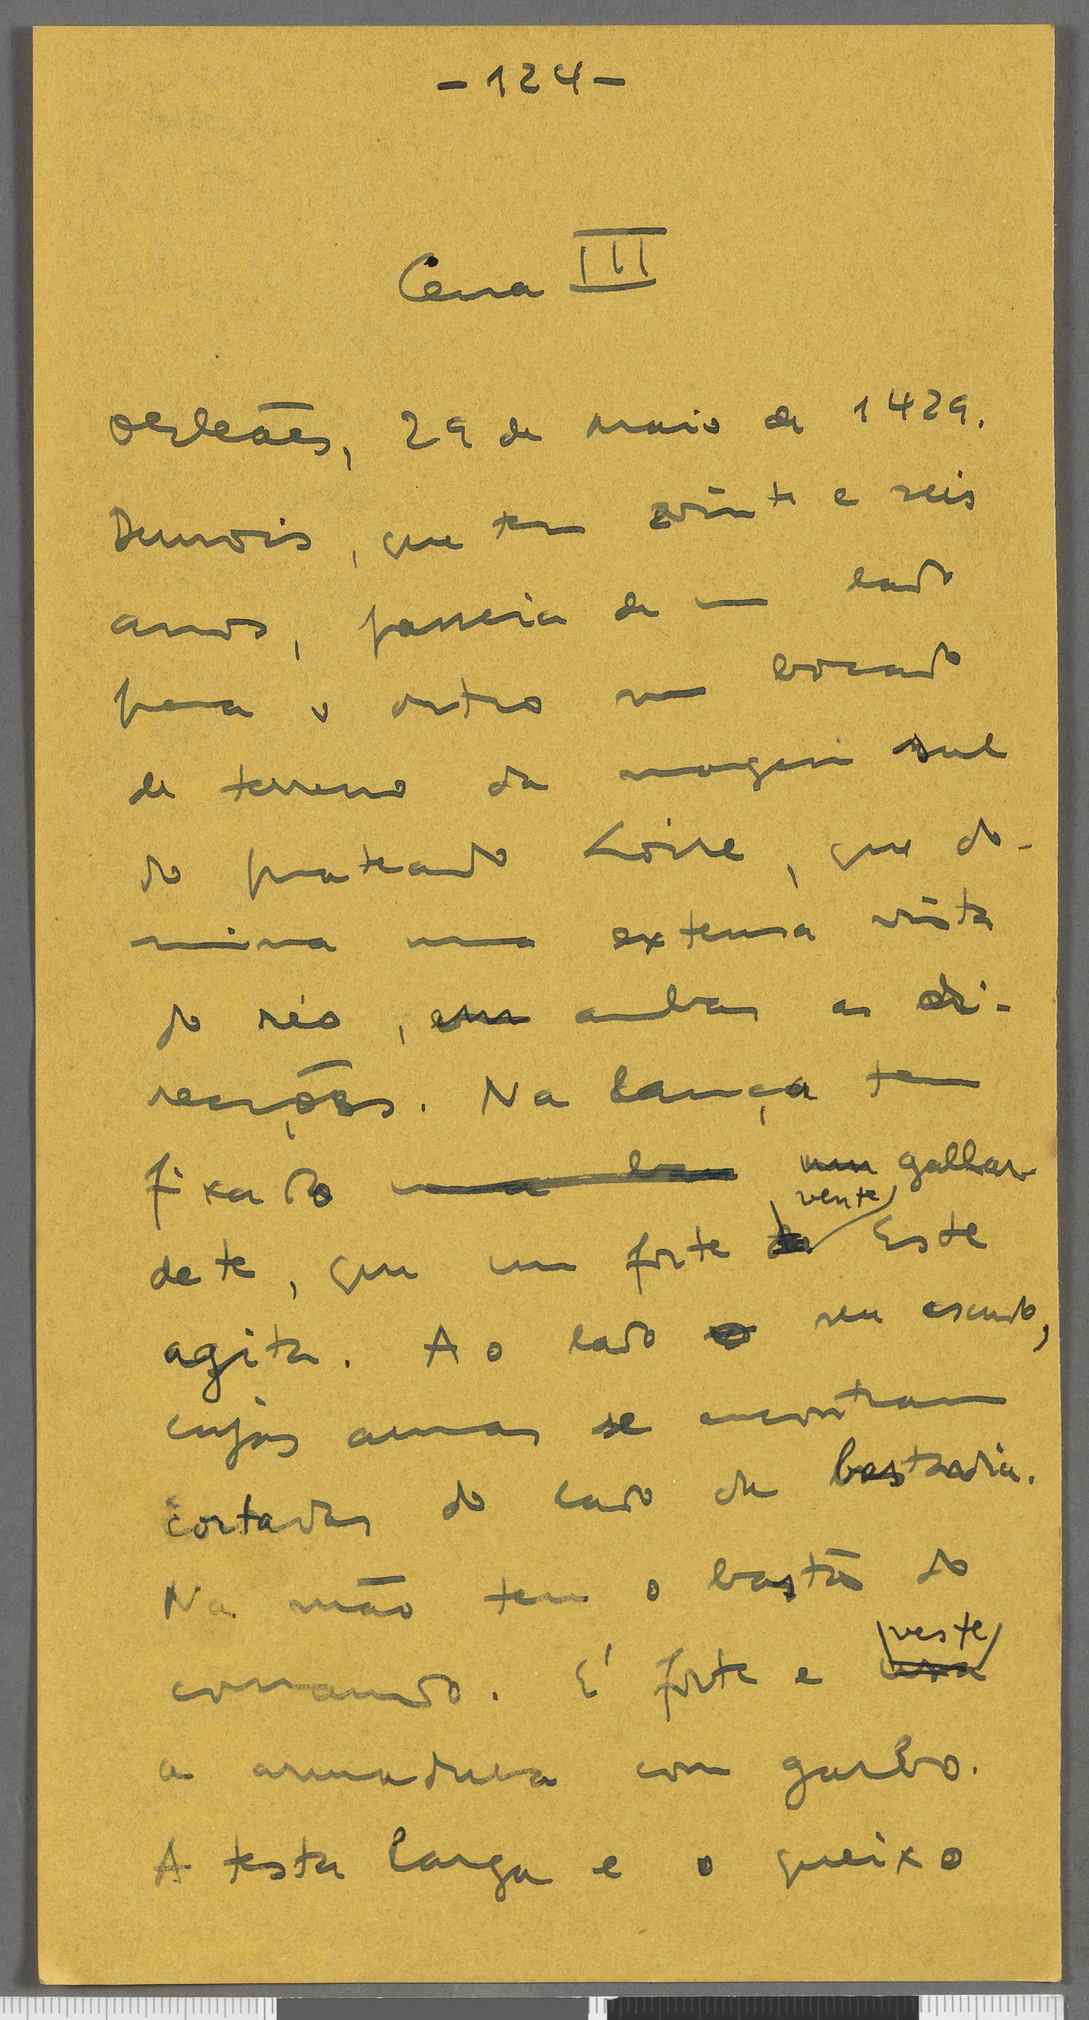 -124-
Cena III
Orleães, 29 de maio de 1429.
Dunois, que tem vinte e seis
anos, passeia de um lado
para o outro num bocado
de terreno da margem sul
do prateado Loire, que do-
mina uma extensa vista
do rio, em ambas as di-
recções. Na lança tem
fixado uma ban um galhar-
dete, que um forte vente Este
agita. Ao lado o seu escudo,
cujas armas se encontram
cortadas do lado da bastardia.
Na mão tem o bastão do
comando. É forte e usa veste
a armadura com garbo.
A testa larga e o queixo